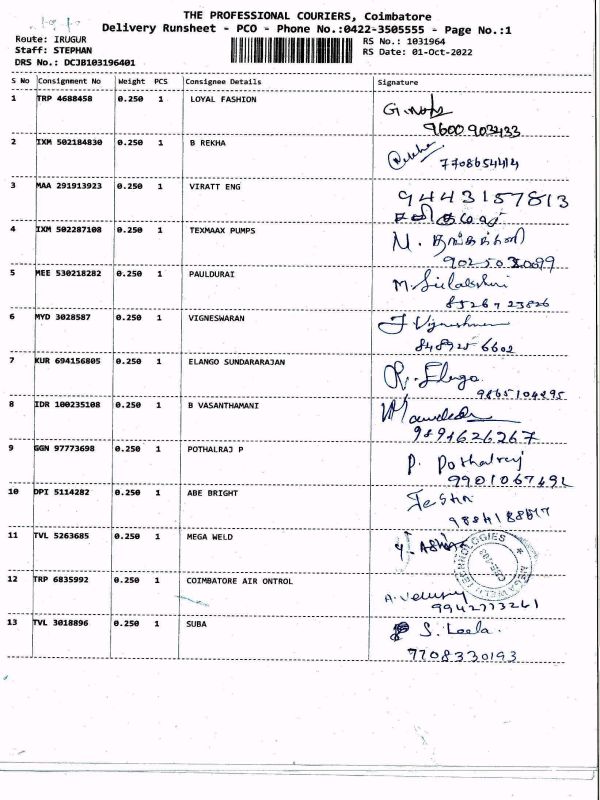 THE PROFESSIONAL COURIERS, Coimbatore
Delivery Runsheet - PCO - Phone No.:0422-3505555 - Page No.:1
Route: IRUGUR RS No.: 1031964
Staff: STEPHAN RS Date: 01-Oct-2022
DRS No.: DCJB103196401
S No Consignment No Weight PCS Consignee Details Signature
1 TRP 4688458 0.250 1 LOYAL FASHION
9600903433
2 IXM 502184830 0.250 1 B REKHA Rekha
7708654414
3 MAA 291913923 0.250 1 VIRATT ENG 9443157813
4 IXM 502287108 0.250 1 TEXMAAX PUMPS M.
9025030099
5 MEE 530218282 0.250 1 PAULDURAI
85267 23826
6 MYD 3028587 0.250 1 VIGNESWARAN J Vigneshwaran
848925 6602
7 KUR 694156805 0.250 1 ELANGO SUNDARARAJAN R. Elango
9865104895
8 IDR 100235108 0.250 1 B VASANTHAMANI
9894626267
9 GGN 97773698 0.250 1 POTHALRAJ P P. Pothalraj
9901067492
10 DPI 5114282 0.250 1 ABE BRIGHT
11 TVL 5263685 0.250 1 MEGA WELD
MEGAWELD TECHNOLOGIES
12 TRP 6835992 0.250 1 COIMBATORE AIR ONTROL
9942773261
13 TVL 3018896 0.250 1 SUBA S. Leela.
7708330193